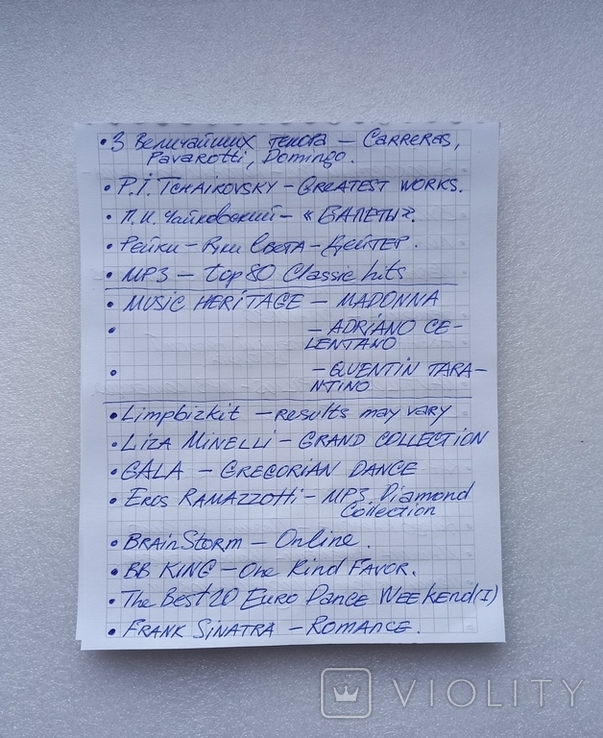 • 3 Величайших тенора – CARRERAS,
Pavarotti, Domingo.
• P.I. TCHAIKOVSKY – GREATEST WORKS.
• П.И. Чайковский – «БАЛЕТЫ».
• Рейки – Руки Света – ДЕЙТЕР.
• MP3 – top 80 Classic hits
• MUSIC HERITAGE – MADONNA
• – ADRIANO CE-
LENTANO
• – QUENTIN TARA-
NTINO
• Limpbizkit – results may vary
• LIZA MINELLI – GRAND COLLECTION
• GALA – GREGORIAN DANCE
• Eros RAMAZZOtti – MP3 Diamond
Collection
• BRAINSTORM – Online.
• BB KING – One Kind FAVOR.
• The Best 20 EURO DANCE WEEKend (I)
• FRANK SINATRA – ROMANCE.
VIOLITY